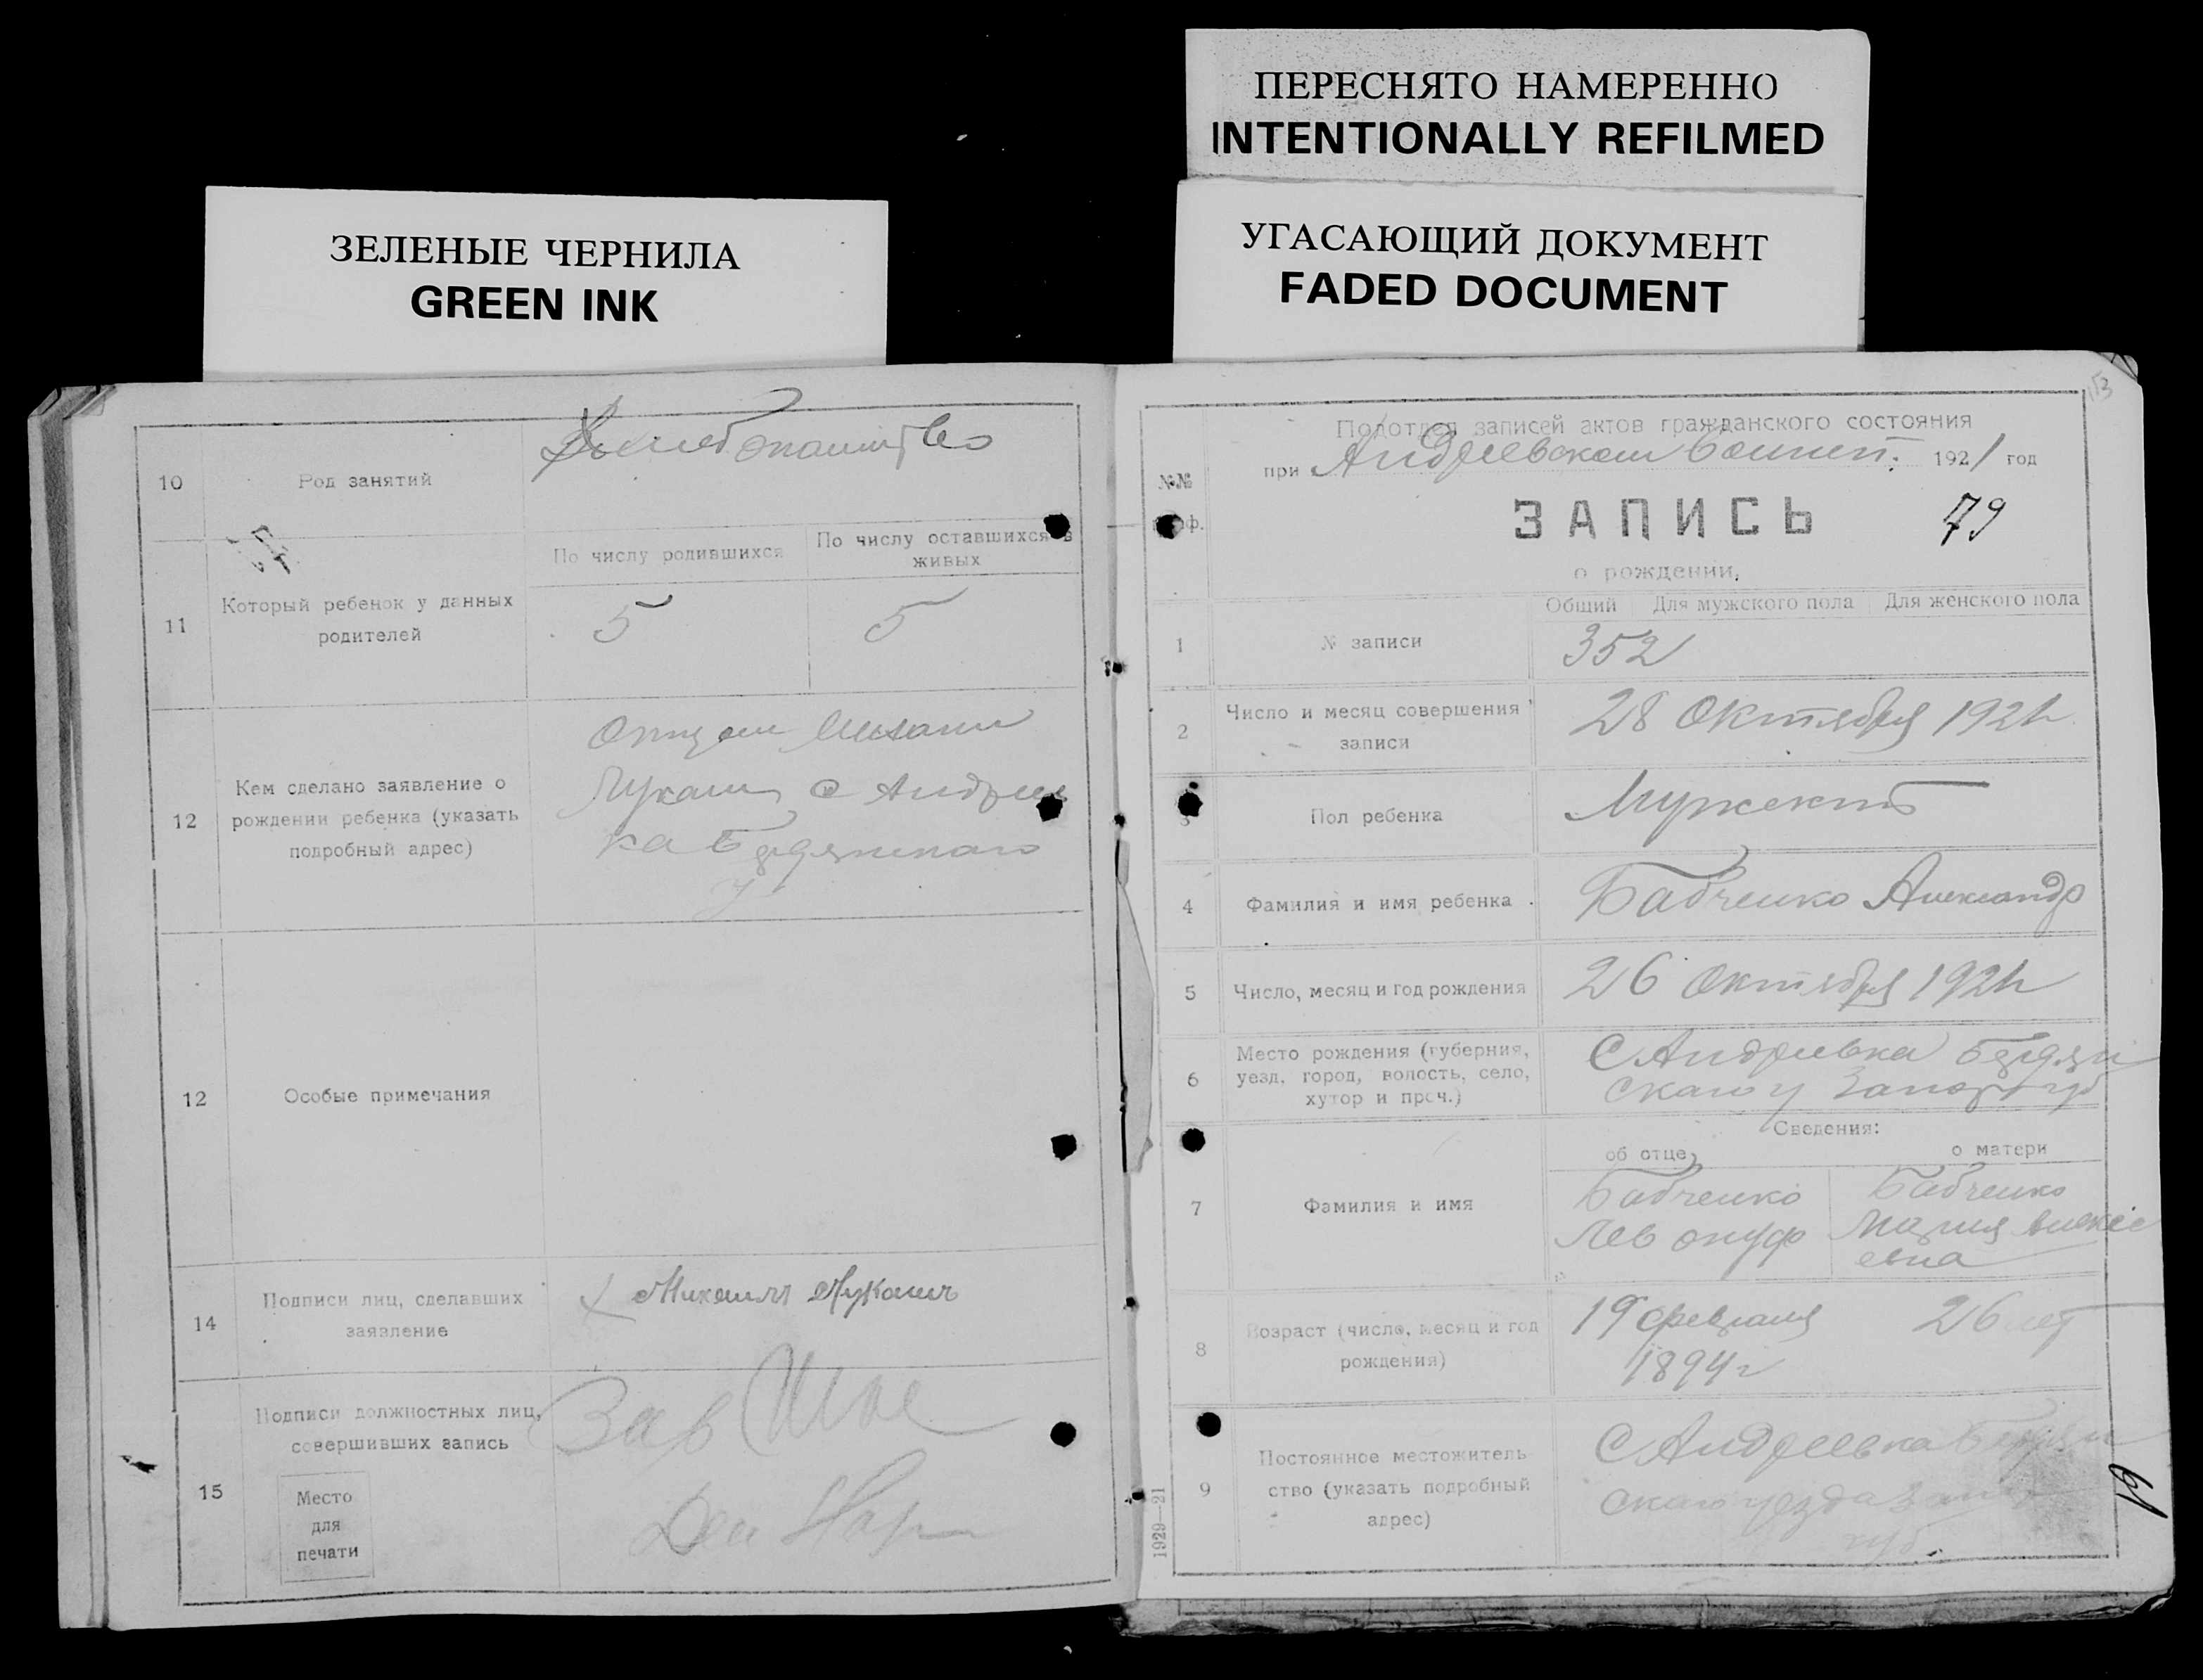 ПЕРЕСНЯТО НАМЕРЕННО
INTENTIONALLY REFILMED
УГАСАЮЩИЙ ДОКУМЕНТ
FADED DOCUMENT
ЗЕЛЕНЫЕ ЧЕРНИЛА
GREEN INK
10 Род занятий
11 Который ребенок у данных
родителей
По числу родившихся
По числу оставшихся в
живых
5 5
12 Кем сделано заявление о
рождении ребенка (указать
подробный адрес)
Отцом
Лукаш с Андреев
ка Бердянского
у
12 Особые примечания
14 Подписи лиц, сделавших
заявление
Михаилъ Лукашъ
15 Подписи должностных лиц,
совершивших запись
Зав
Место
для
печати
Подотдел записей актов гражданского состояния
при Андреевском 1921 год
№№
ЗАПИСЬ 79
о рождении,
Общий Для мужского пола Для женского пола
1 № записи 352
2 Число и месяц совершения
записи
28 Октября 1921 г
3 Пол ребенка Мужской
4 Фамилия и имя ребенка Бабченко Александр
5 Число, месяц и год рождения 26 Октября 1921 г
6 Место рождения (губерния,
уезд, город, волость, село,
хутор и проч.)
С Андреевка Бердян
ского у Запор губ
Сведения:
об отце о матери
7 Фамилия и имя
Бабченко
Лев онуф
Бабченко
Мария
евна
8 Возраст (число, месяц и год
рождения)
19 февраля
1894 г
26 лет
9 Постоянное местожитель
ство (указать подробный
адрес)
С Андреевка Бердян
ского уезда Запор
губ.
1929—21
19